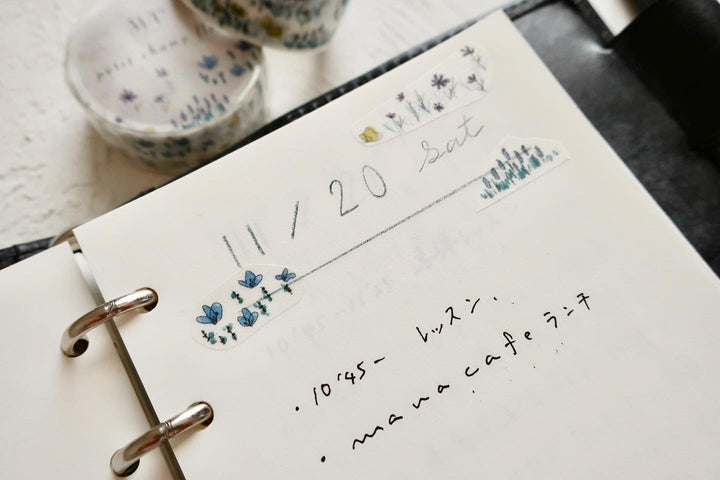 petit champ
11/20 sat
・10:45- レッスン.
・mana cafe ランチ